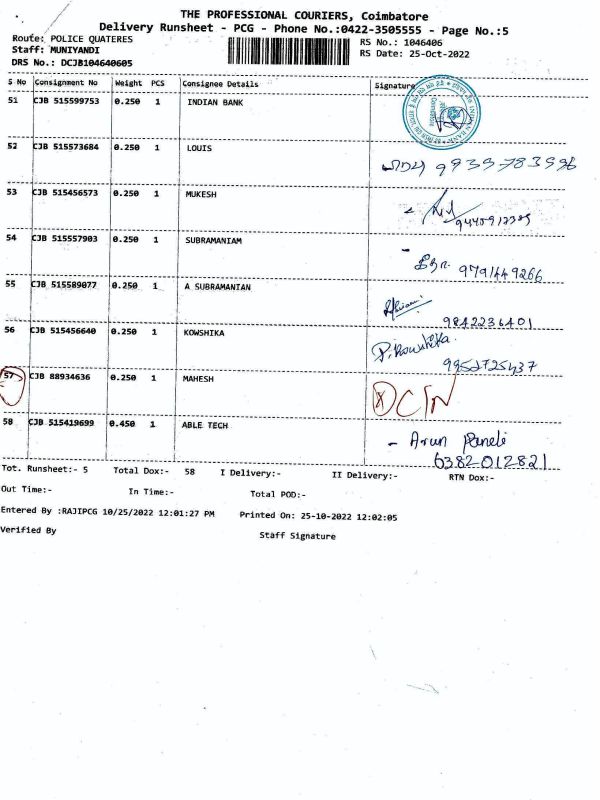 THE PROFESSIONAL COURIERS, Coimbatore
Delivery Runsheet - PCG - Phone No.:0422-3505555 - Page No.:5
Route: POLICE QUATERES RS No.: 1046406
Staff: MUNIYANDI RS Date: 25-Oct-2022
DRS No.: DCJB104640605
S No Consignment No Weight PCS Consignee Details Signature
51 CJB 515599753 0.250 1 INDIAN BANK
52 CJB 515573684 0.250 1 LOUIS
53 CJB 515456573 0.250 1 MUKESH
54 CJB 515557903 0.250 1 SUBRAMANIAM
9791449266
55 CJB 515589077 0.250 1 A SUBRAMANIAN
9842236401
56 CJB 515456640 0.250 1 KOWSHIKA
P. Kowshika.
57 CJB 88934636 0.250 1 MAHESH
58 CJB 515419699 0.450 1 ABLE TECH
- Arun
6382012821
Tot. Runsheet:- 5 Total Dox:- 58 I Delivery:- II Delivery:- RTN Dox:-
Out Time:- In Time:- Total POD:-
Entered By :RAJIPCG 10/25/2022 12:01:27 PM Printed On: 25-10-2022 12:02:05
Verified By Staff Signature